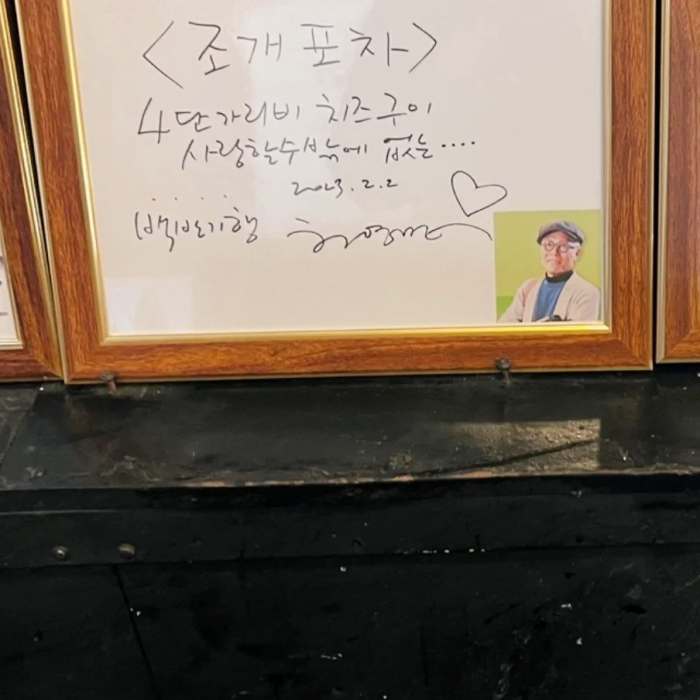 <조개포차>
4단가리비 치즈구이
사랑할수밖에 없는....
2023.2.2
백반기행